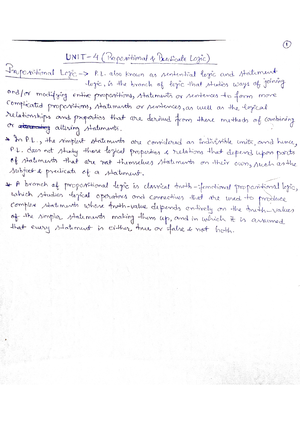 1
UNIT-4 (Propositional & Predicate Logic)
Propositional Logic → P.L. also known as sentential logic and statement
logic, is the branch of logic that studies ways of joining
and/or modifying entire propositions, statements or sentences to form more
complicated propositions, statements or sentences, as well as the logical
relationships and properties that are derived from these methods of combining
or altering statements.
* In P.L., the simplest statements are considered as indivisible units, and hence,
P.L. does not study those logical properties & relations that depend upon parts
of statements that are not themselves statements on their own, such as the
subject & predicate of a statement.
* A branch of propositional logic is classical truth-functional propositional logic,
which studies logical operators and connectives that are used to produce
complex statements whose truth-value depends entirely on the truth-values
of the simpler statements making them up, and in which it is assumed
that every statement is either true or false & not both.